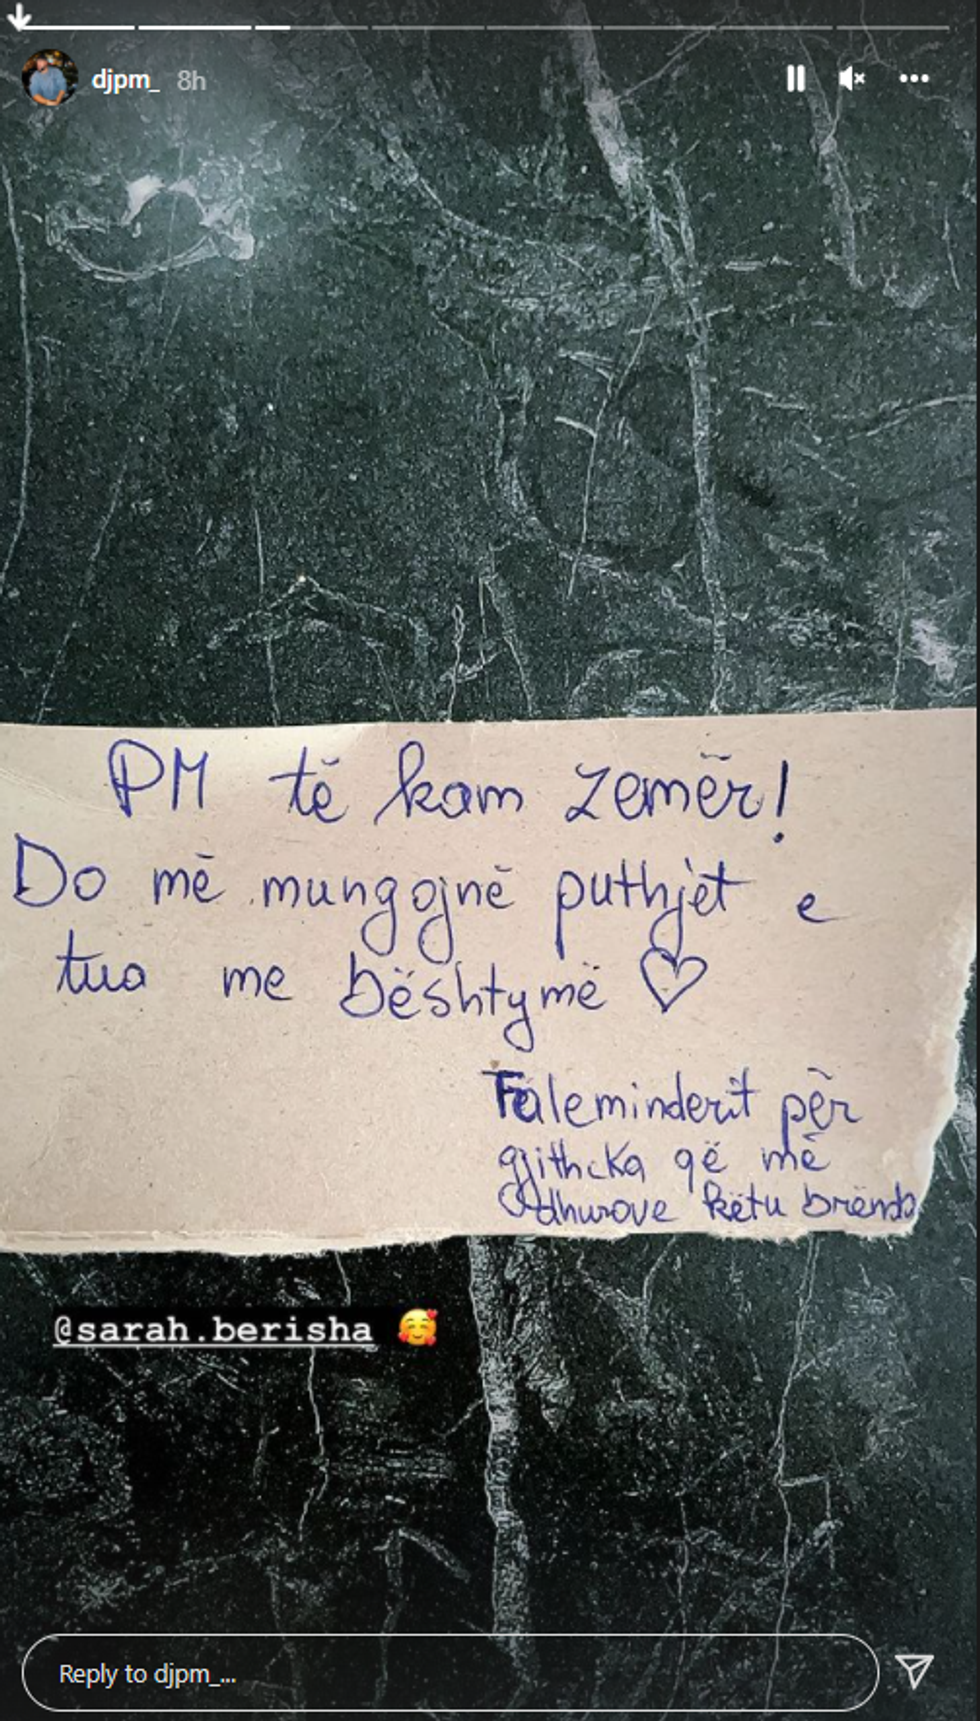 djpm_ 8h
PM të kam zemër!
Do më mungojnë puthjet e
tua me bështymë ♡
Faleminderit për
gjithcka që më
dhurove këtu brënda
@sarah.berisha 🥰
Reply to djpm_...